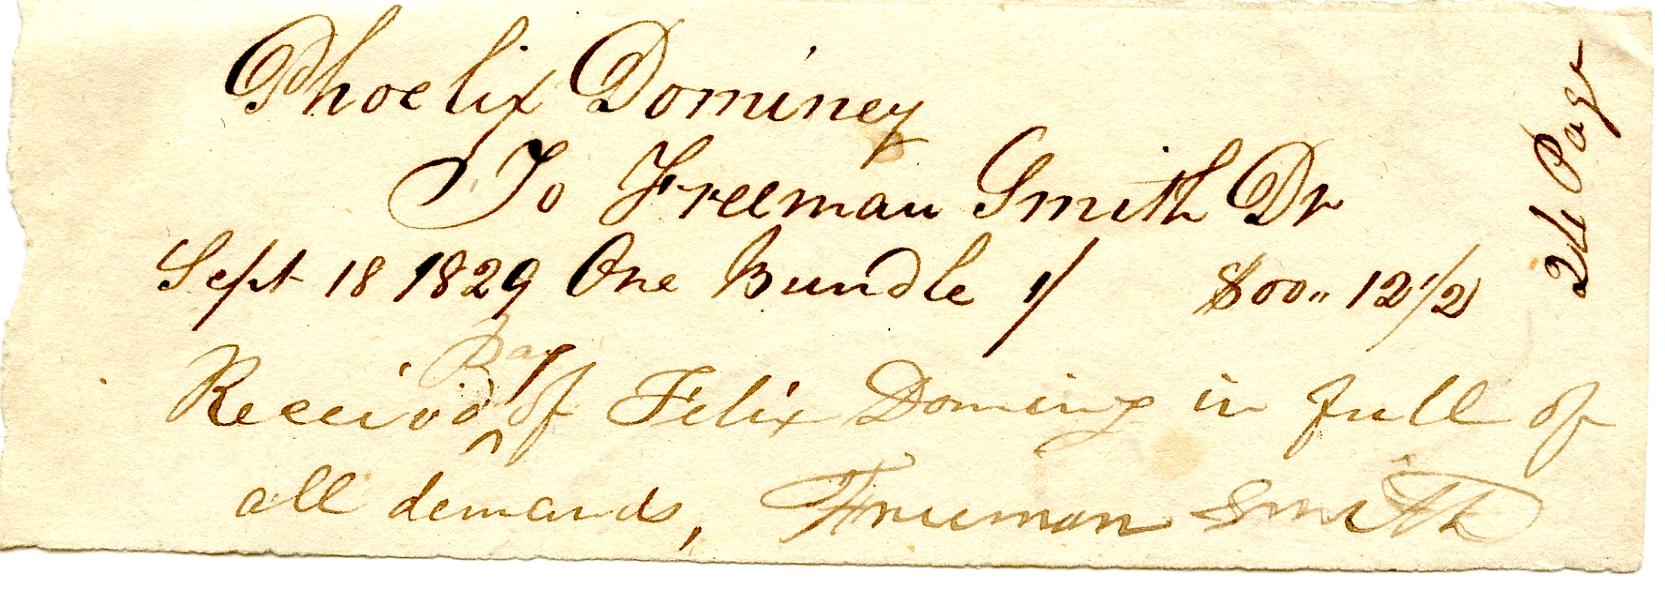 Phoelix Dominey
To Freeman Smith Dr
Sept 18 1829 One Bundle 1/ $00,, 12 1/2
Pay
Receivd of Felix Dominy in full of
all demands, Freeman Smith
24 Pag